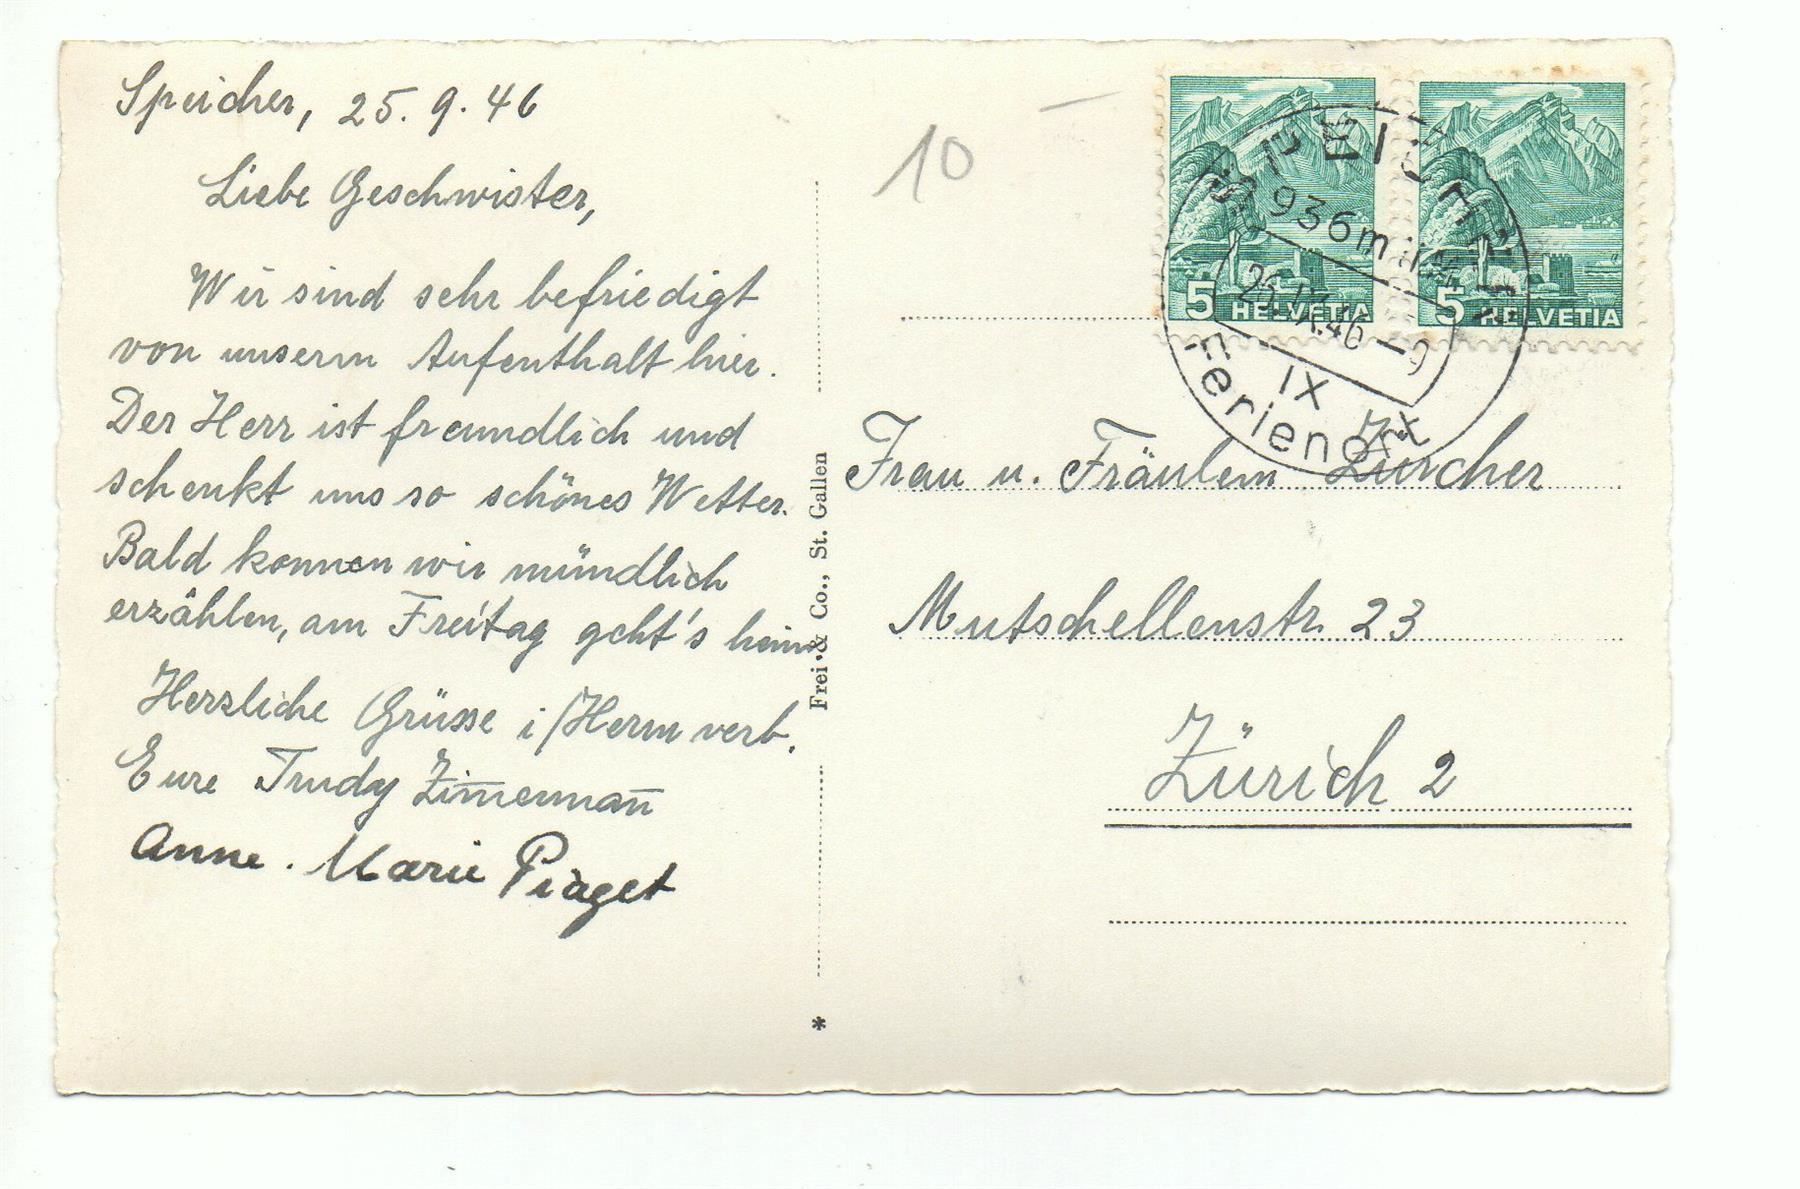 Speicher, 25. 9. 46
Liebe Geschwister,
Wir sind sehr befriedigt
von unserm Aufenthalt hier.
Der Herr ist freundlich und
schenkt uns so schönes Wetter.
Bald konnen wir mündlich
erzählen, am Freitag geht's heim
Herzliche Grüsse i/Herrn verb.
Eure Trudy Zim̅erman̅
Anne-Marie Piaget
Frei & Co., St. Gallen
*
10
5 HELVETIA
5 HELVETIA
SPEICHER
936 m
25.IX.46–9
IX
Ferienort
Frau u. Fräulein Zürcher
Mutschellenstr. 23
Zürich 2